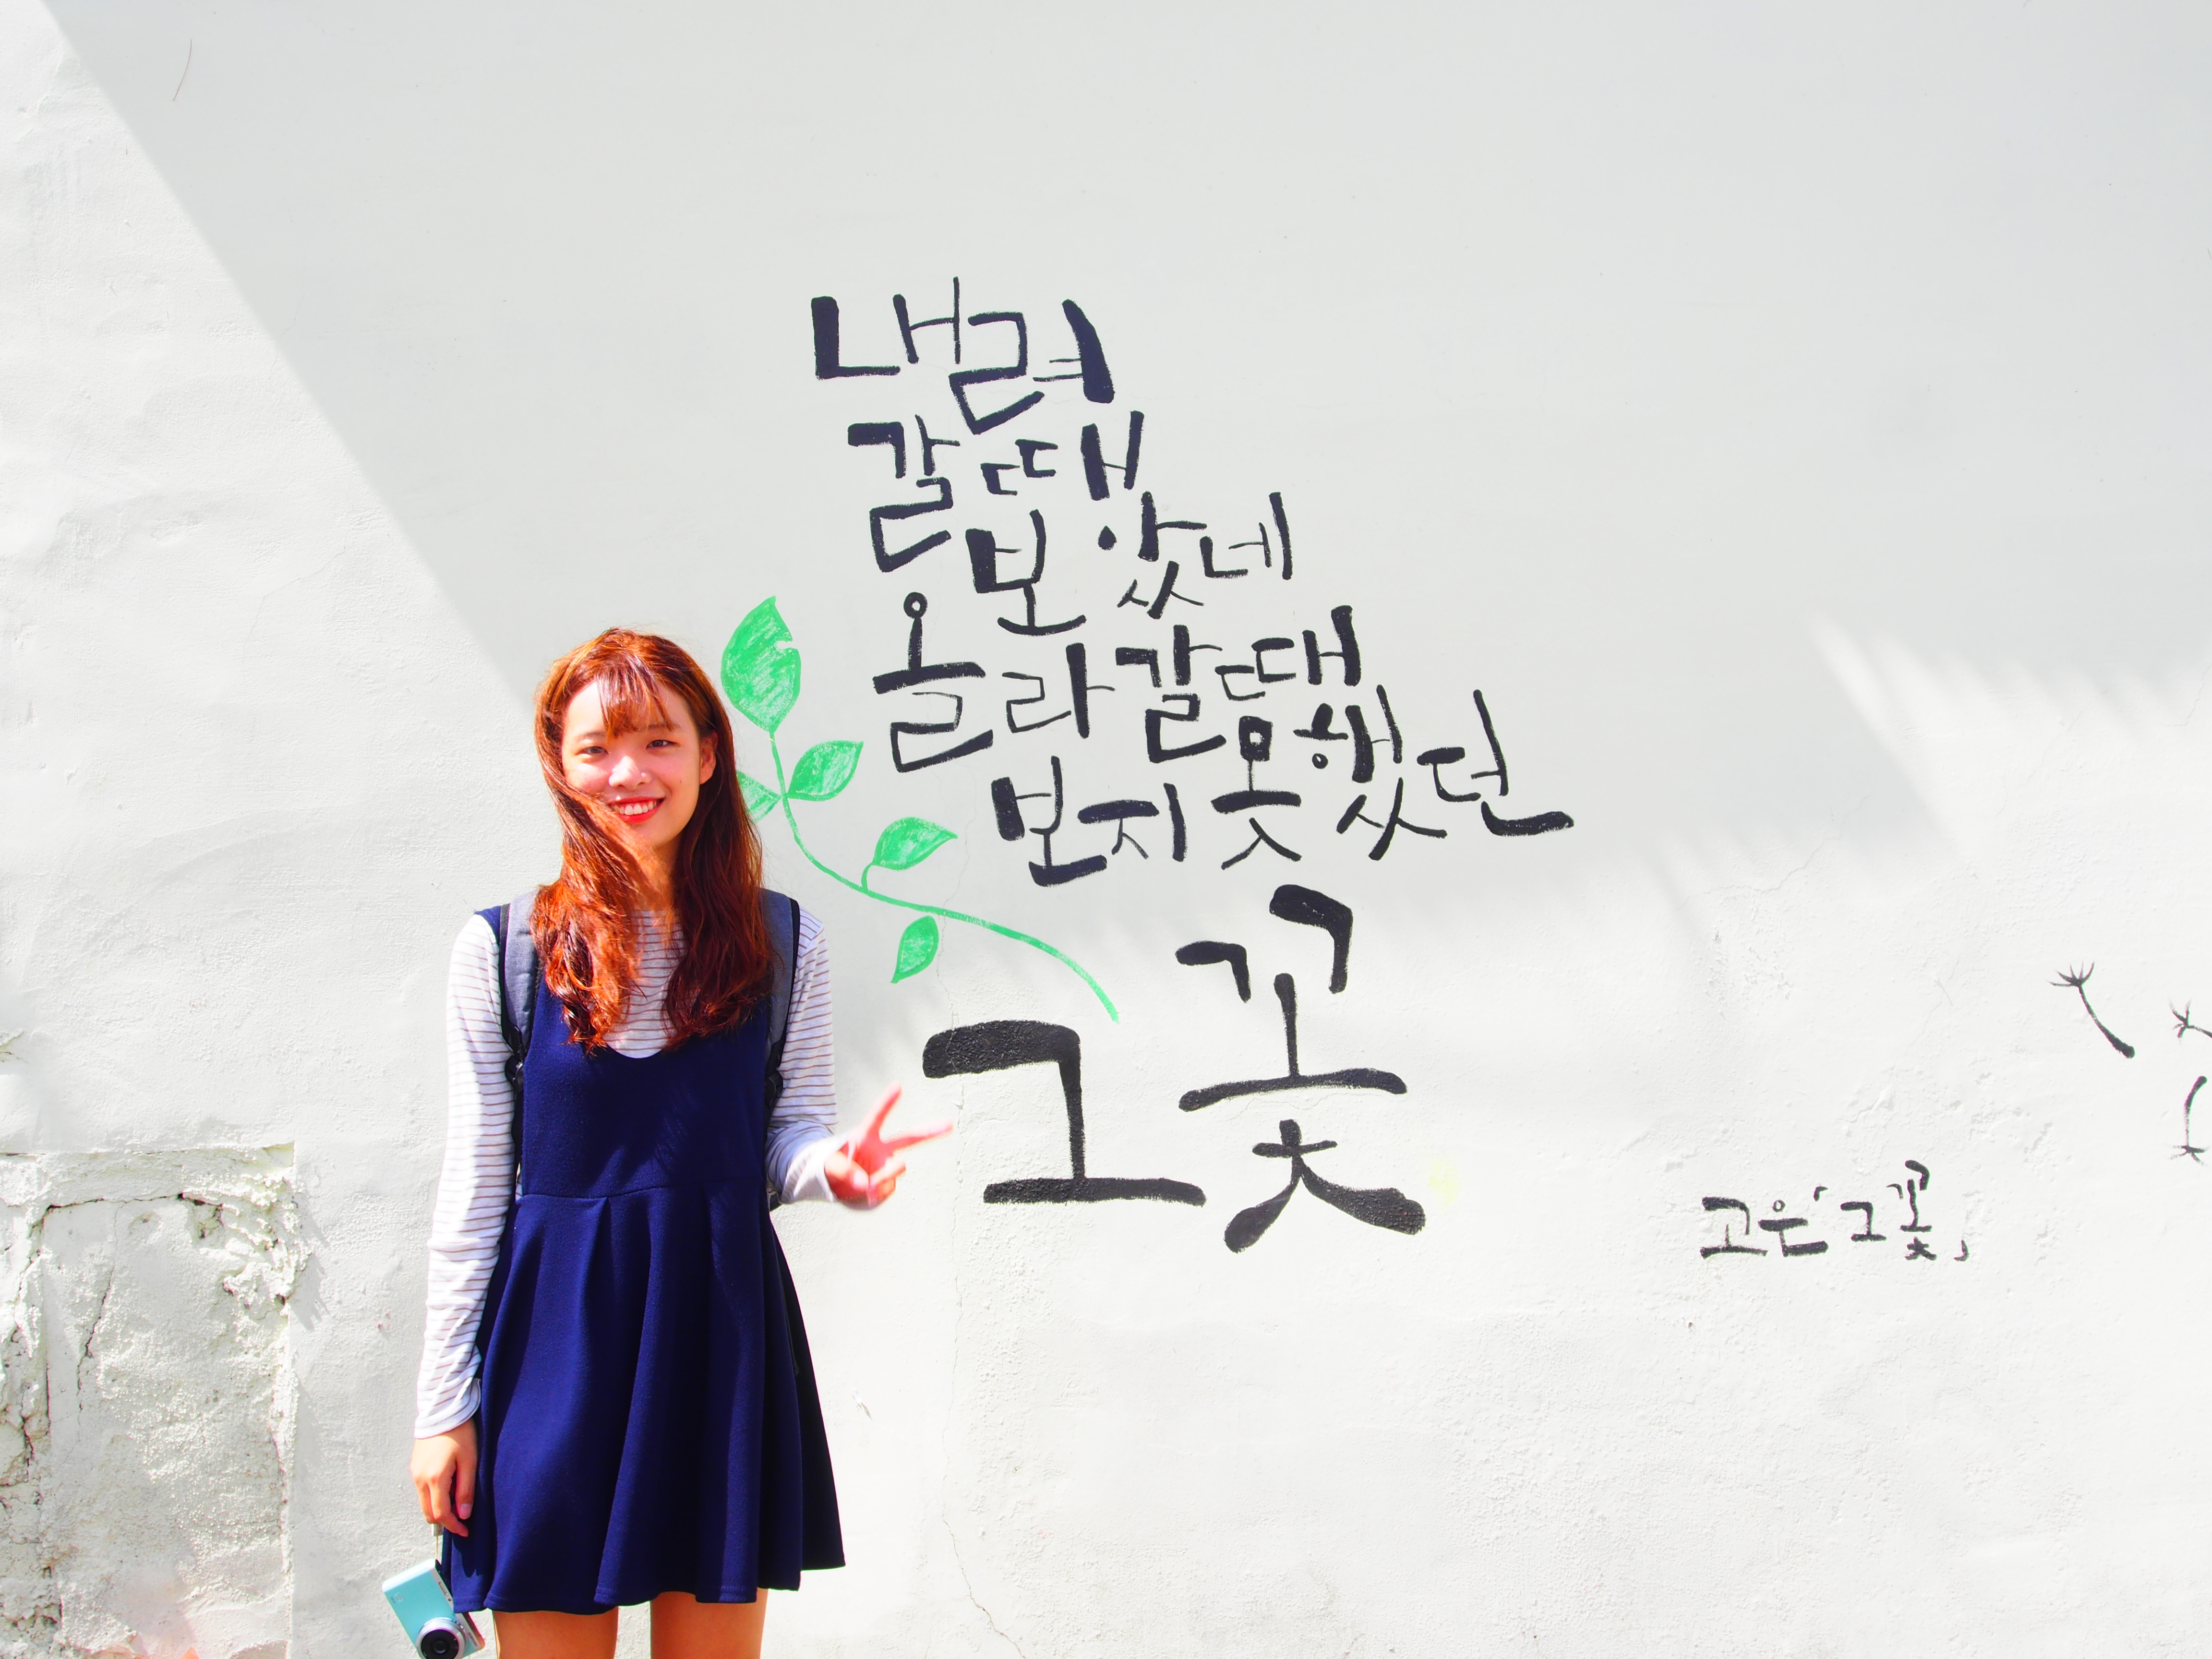 내려
갈 때
보았네
올라갈 때
보지 못했던
그 꽃
고은 「그 꽃」